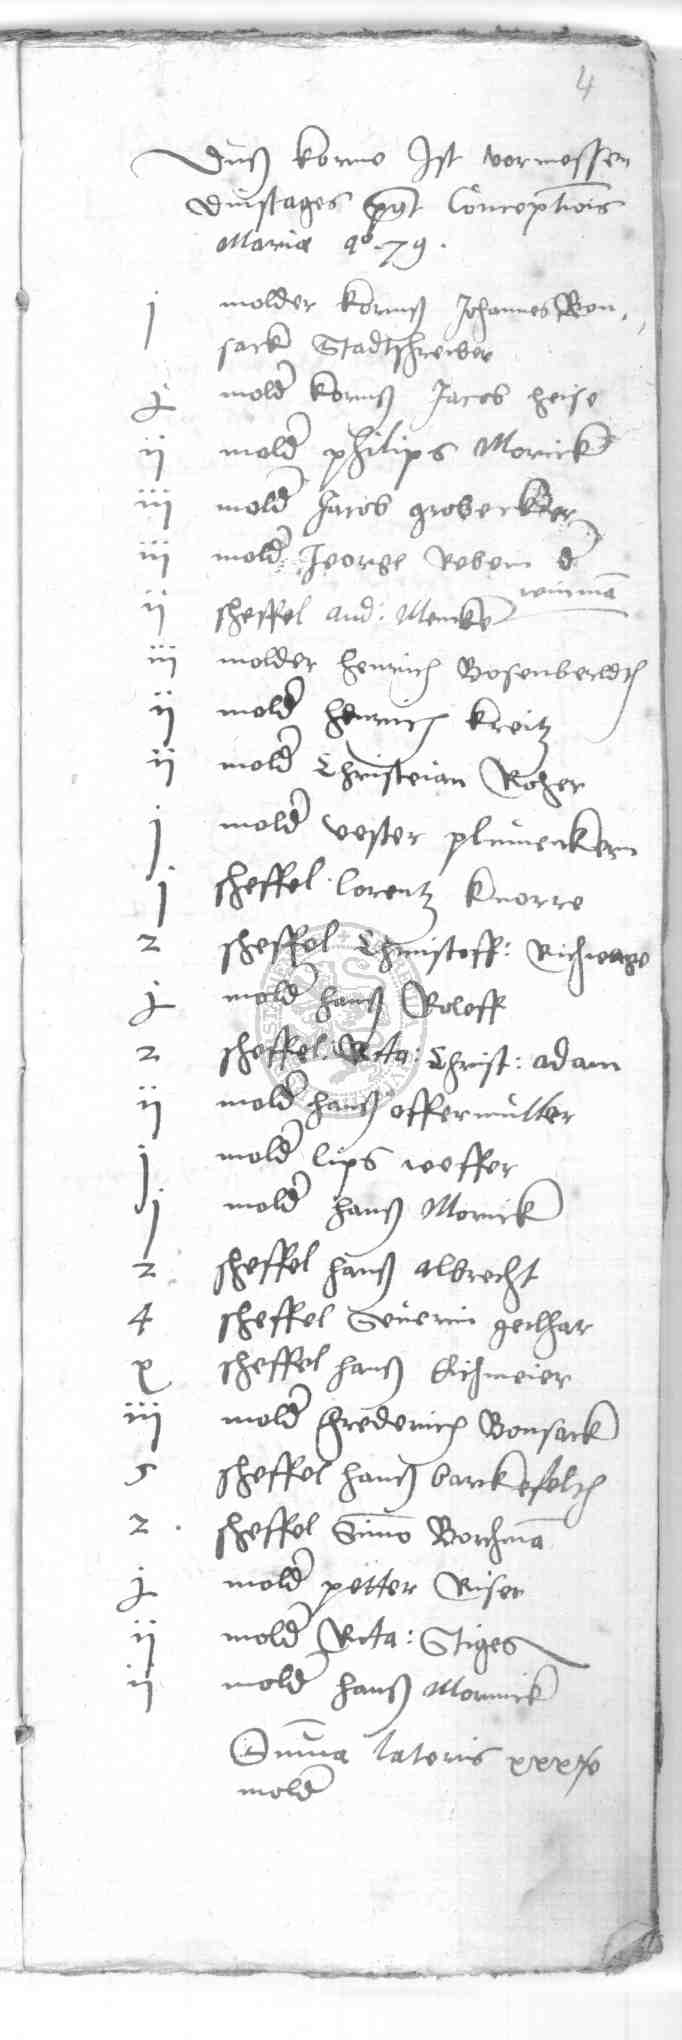 4
Duß korne Ist vormessen
dinstages post Conceptiois
Mariæ ao 79.
j molder kornß Johannes Bon,,
sack Stadtschreiber
j mold kornß Jacob heise
ij mold philips Morick
iij mold Jacob grobecker
iij mold George Rebem d
weinma
ij scheffel And: Mencke
iij molder henrich Bosenberch
ij mold henrich kreitz
ij mold Christian Roher
j mold vester plumenkern
j scheffel lorentz knorre
2 scheffel Christoff: Richenage
j mold hanß Roleff
2 scheffel Christ: adam
ij mold hanß offermuller
j mold lips weffer
j mold hanß Morick
2 scheffel hanß albrecht
4 scheffel Severin gerlhar
x scheffel hanß Eichmeier
iij mold frederich Bonsack
5 scheffel hanß barckefelth
2 scheffel Simo Borchma
j mold petter Riser
ij mold Stiges
ij mold hanß Mornick
Suma lateris
mold